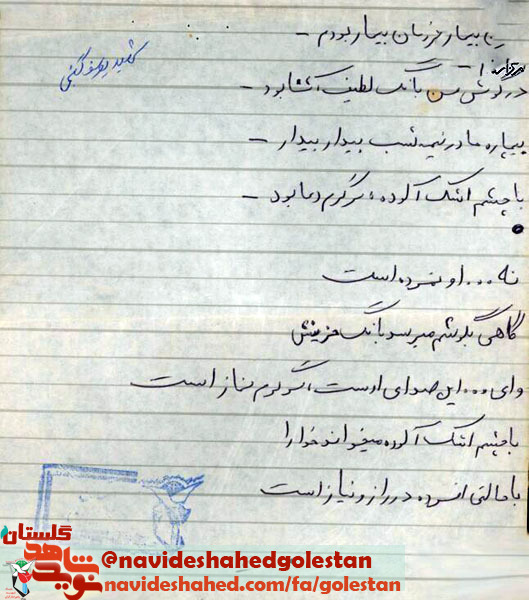 من بیمار خزان بیمار بودم –
در گوش من بانگ لطیف آشنا بود –
بیچاره مادر نیمه شب بیدار بیدار –
با چشم اشک آلوده، سرگرم دعا بود –
نه ... او نمرده است
گاهی بگوشم میرسد بانگ حزینش
وای ... این صدای اوست، سرگرم نماز است
با چشم اشک آلوده میخواند خدا را
با حالتی افسرده در راز و نیاز است
شهید یوسف گنجی
گلستان
نوید شاهد
@navideshahedgolestan
navideshahed.com/fa/golestan